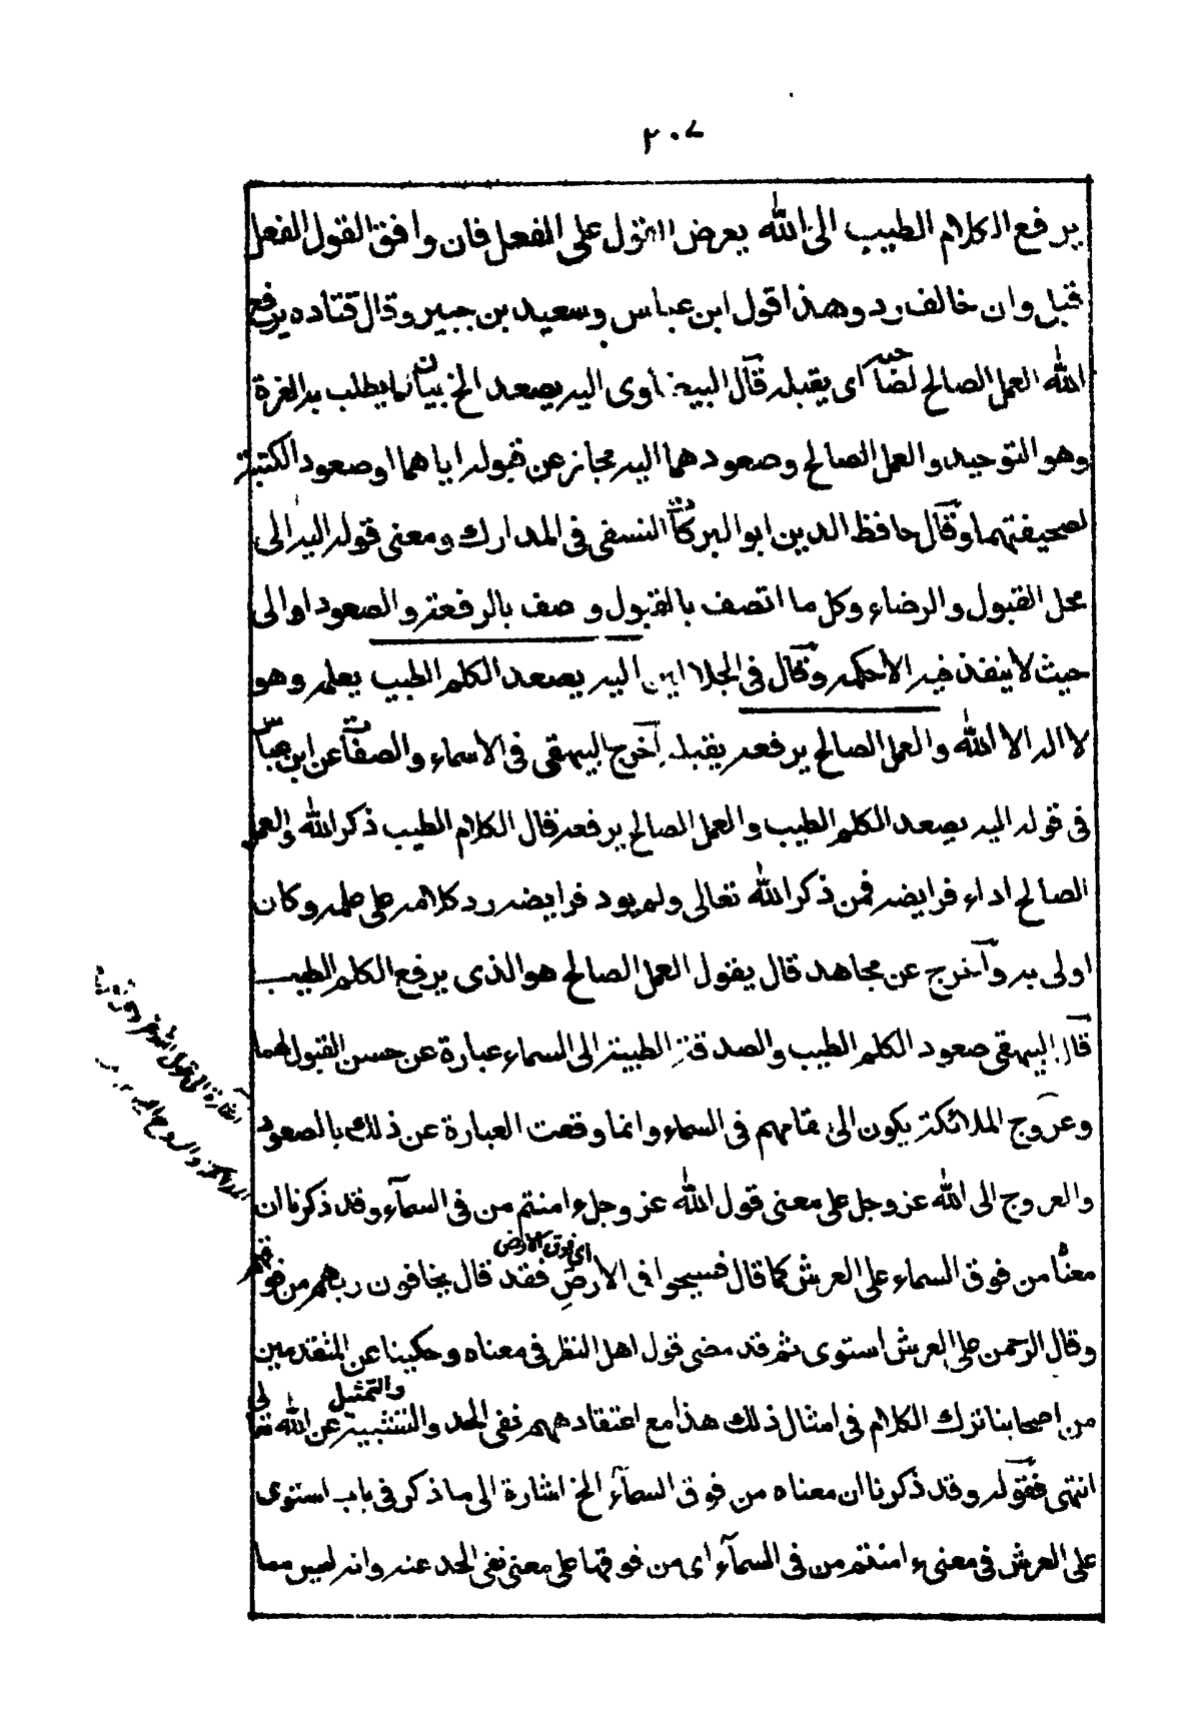 ٢٠٧
يرفع الكلام الطيب الى الله يعرض القول على الفعل فان وافق القول الفعل
قبل وان خالف رد وهذا قول ابن عباس وسعيد بن جبير وقال قتاده يرفع
الله العمل الصالح لصاحبه اى يقبله قال البيضاوى اليه يصعد الخ بيان لما يطلب به العزة
وهو التوحيد والعمل الصالح وصعودهما اليه مجاز عن قبوله اياهما او صعود الكتبة
لصحيفتهما وقال حافظ الدين ابو البركات النسفى فى المدارك ومعنى قوله اليه الى
محل القبول والرضاء وكل ما اتصف بالقبول وصف بالرفعة والصعود او الى
حيث لا ينفذ فيه الا حكمه وقال فى الجلالين اليه يصعد الكلم الطيب يعلمه وهو
لا اله الا الله والعمل الصالح يرفعه يقبله اخرج البيهقى فى الاسماء والصفات عن ابن عباس
فى قوله اليه يصعد الكلم الطيب والعمل الصالح يرفعه قال الكلام الطيب ذكر الله والعمل
الصالح اداء فرايضه فمن ذكر الله تعالى ولم يود فرايضه رد كلامه على عمله وكان
اولى به واخرج عن مجاهد قال يقول العمل الصالح هو الذى يرفع الكلم الطيب
قال البيهقى صعود الكلم الطيب والصدقة الطيبة الى السماء عبارة عن حسن القبول لهما
وعروج الملائكة يكون الى مقامهم فى السماء وانما وقعت العبارة عن ذلك بالصعود
والعروج الى الله عز وجل على معنى قول الله عز وجل ء امنتم من فى السمآء وقد ذكرنا ان
معناه من فوق السماء على العرش كما قال فسيحوا فى الارض اى فوق الارض فقد قال يخافون ربهم من فوقهم
وقال الرحمن على العرش استوى ثم قد مضى قول اهل النظر فى معناه وحكينا عن المتقدمين
من اصحابنا ترك الكلام فى امثال ذلك هذا مع اعتقادهم نفى الحد والتشبيه والتمثيل عن الله تعالى
انتهى فقوله وقد ذكرنا ان معناه من فوق السمآء الخ اشارة الى ما ذكر فى باب استوى
على العرش فى معنى ء امنتم من فى السمآء اى من فوقها على معنى نفى الحد عنه وانه ليس مما
اشارة الى قول الله عز وجل
الملائكة والروح اليه